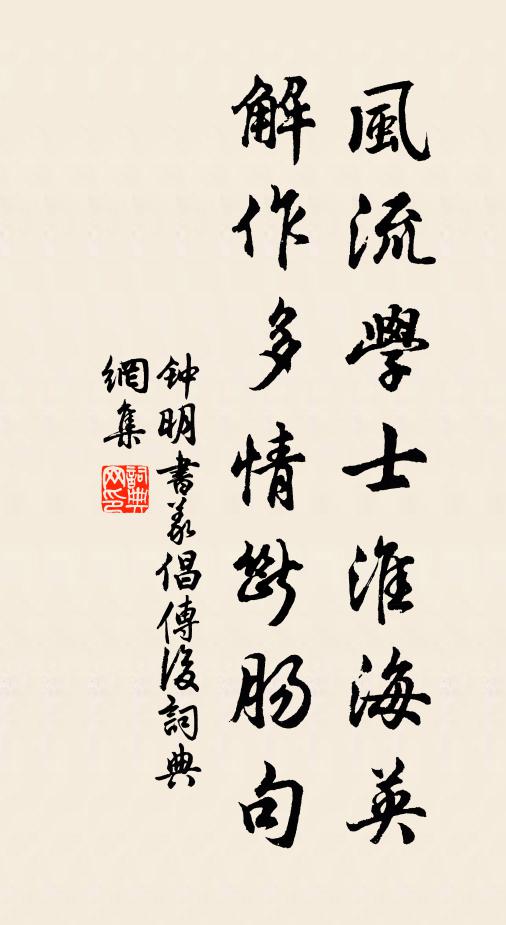 風流學士淮海英
解作多情斷腸句
钟明書羲倡傳後詞典
網集
詞典
网印